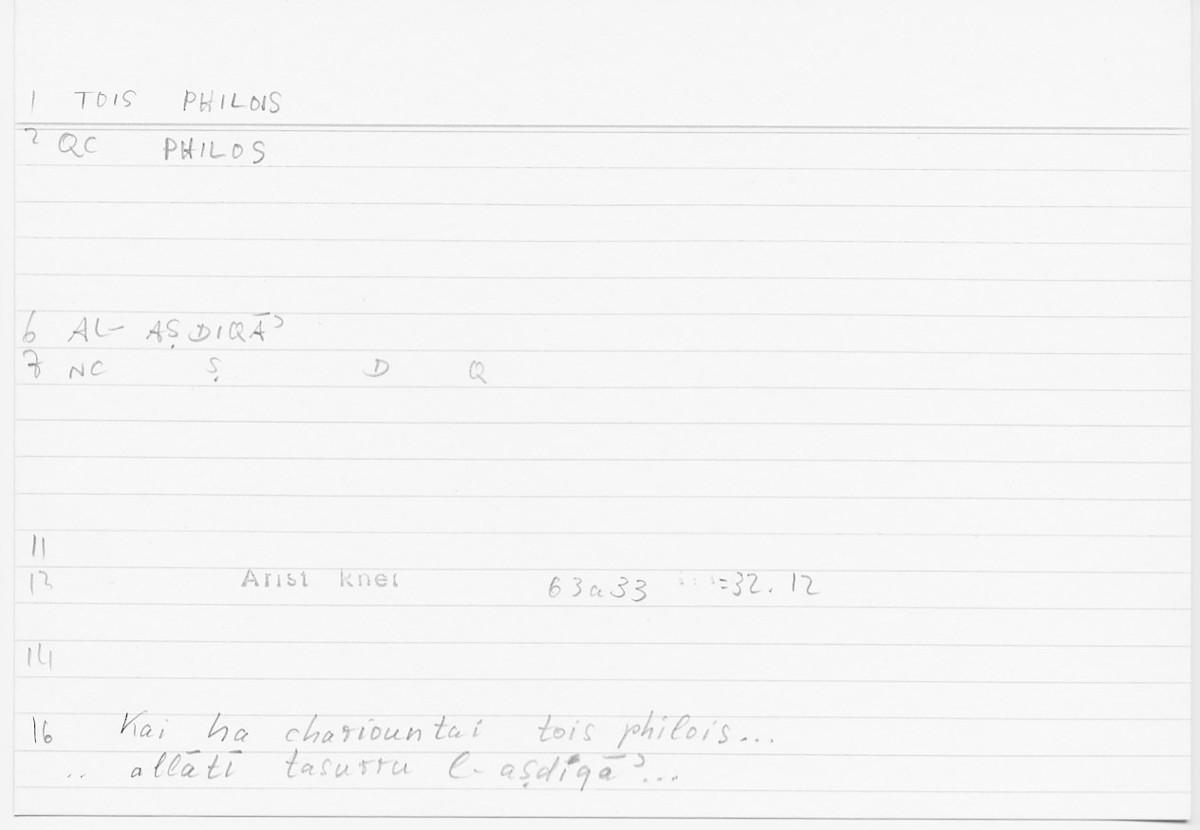 1 TOIS PHILOIS
2 QC PHILOS
6 AL- AṢDIQĀʾ
7 NC Ṣ D Q
11
12 Arist rhet 63a33 =32.12
14
16 Kai ha chariountai tois philois...
.. allātī tasurru l-aṣdiqāʾ...